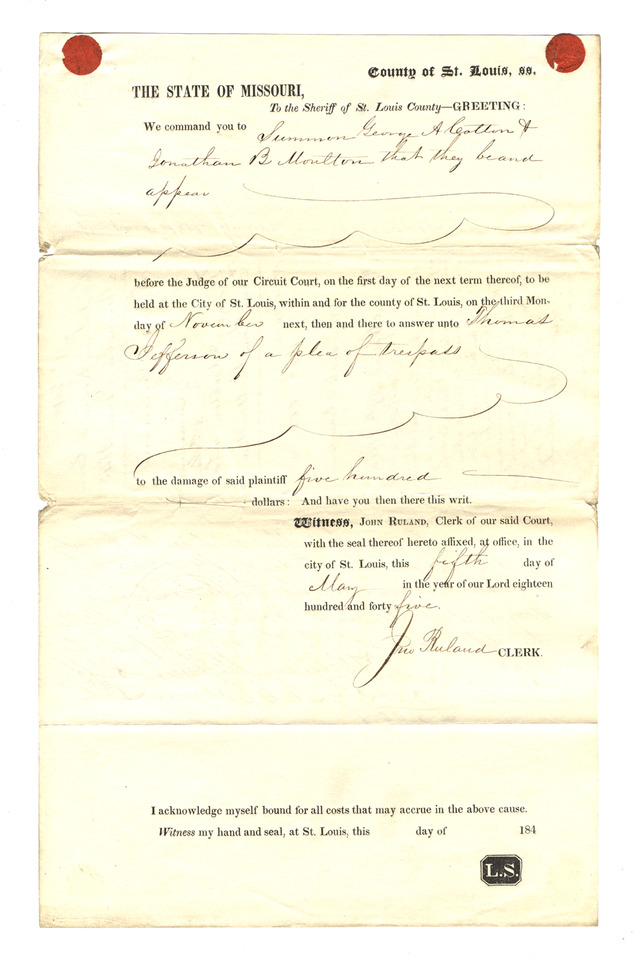 County of St. Louis, ss.
THE STATE OF MISSOURI,
To the Sheriff of St. Louis County—GREETING:
We command you to Summon George A Colton &
Jonathan B Moulton that they be and
appear
before the Judge of our Circuit Court, on the first day of the next term thereof, to be
held at the City of St. Louis, within and for the county of St. Louis, on the third Mon-
day of November next, then and there to answer unto Thomas
Jefferson of a plea of trespass
to the damage of said plaintiff five hundred
dollars: And have you then there this writ.
Witness, JOHN RULAND, Clerk of our said Court,
with the seal thereof hereto affixed, at office, in the
city of St. Louis, this fifth day of
May in the year of our Lord eighteen
hundred and forty five.
Jno Ruland CLERK.
I acknowledge myself bound for all costs that may accrue in the above cause.
Witness my hand and seal, at St. Louis, this day of 184
L.S.